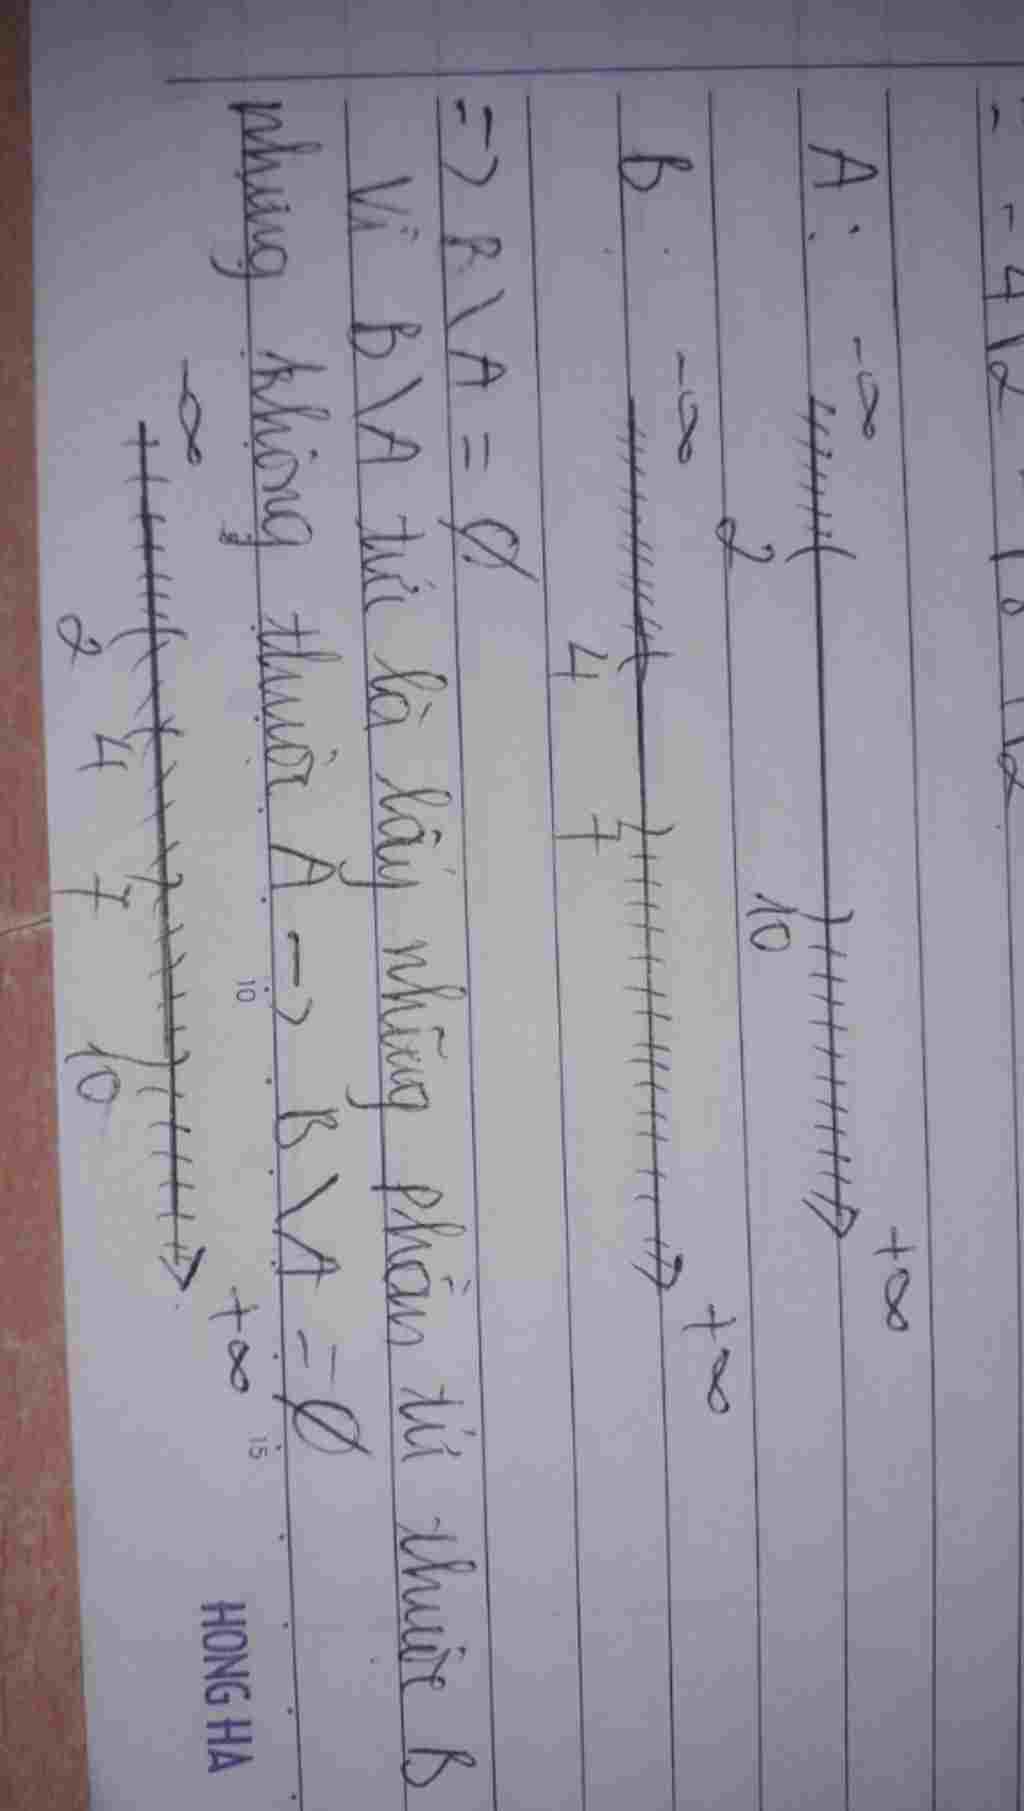 A: -∞ 2 10 +∞
B: -∞ 4 7 +∞
=> B \ A = ∅
Vì B \ A tức là lấy những phần tử thuộc B
nhưng không thuộc A -> B \ A = ∅
-∞ 2 4 7 10 +∞
5 10 15
HONG HA